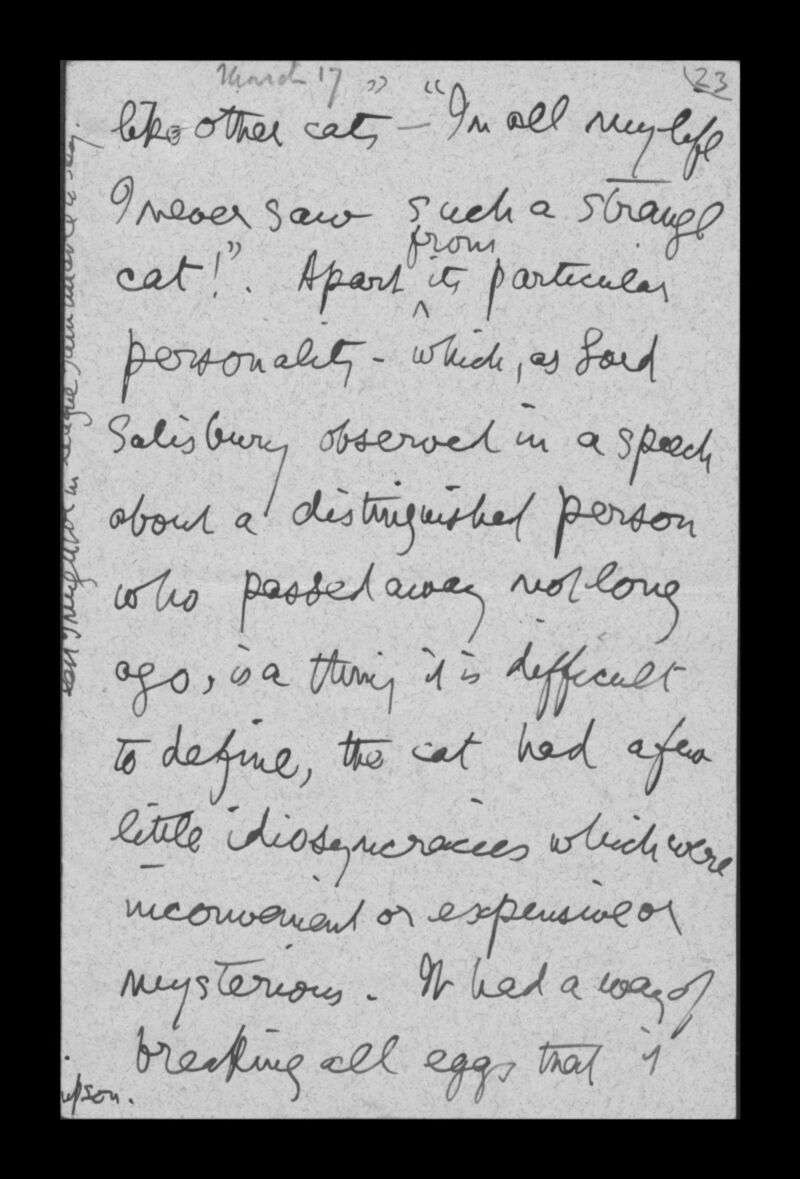 March 17
23
like other cats" — "In all my life
I never saw such a strange
cat!". Apart from its particular
personality - which, as Lord
Salisbury observed in a speech
about a distinguished person
who passed away not long
ago, is a thing it is difficult
to define, the cat had a few
little idiosyncracies which were
inconvenient or expensive or
mysterious. It had a way of
breaking all eggs that it